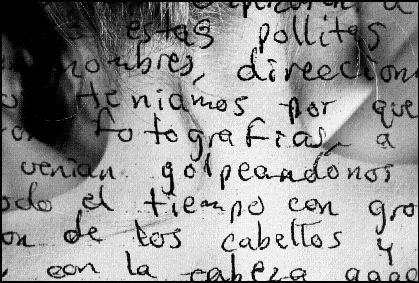 estas pollitas
nombres, direccion
teniamos por que
fotografias, a
venian golpeandonos
odo el tiempo con gro
on de los cabellos y
con la cabeza agac